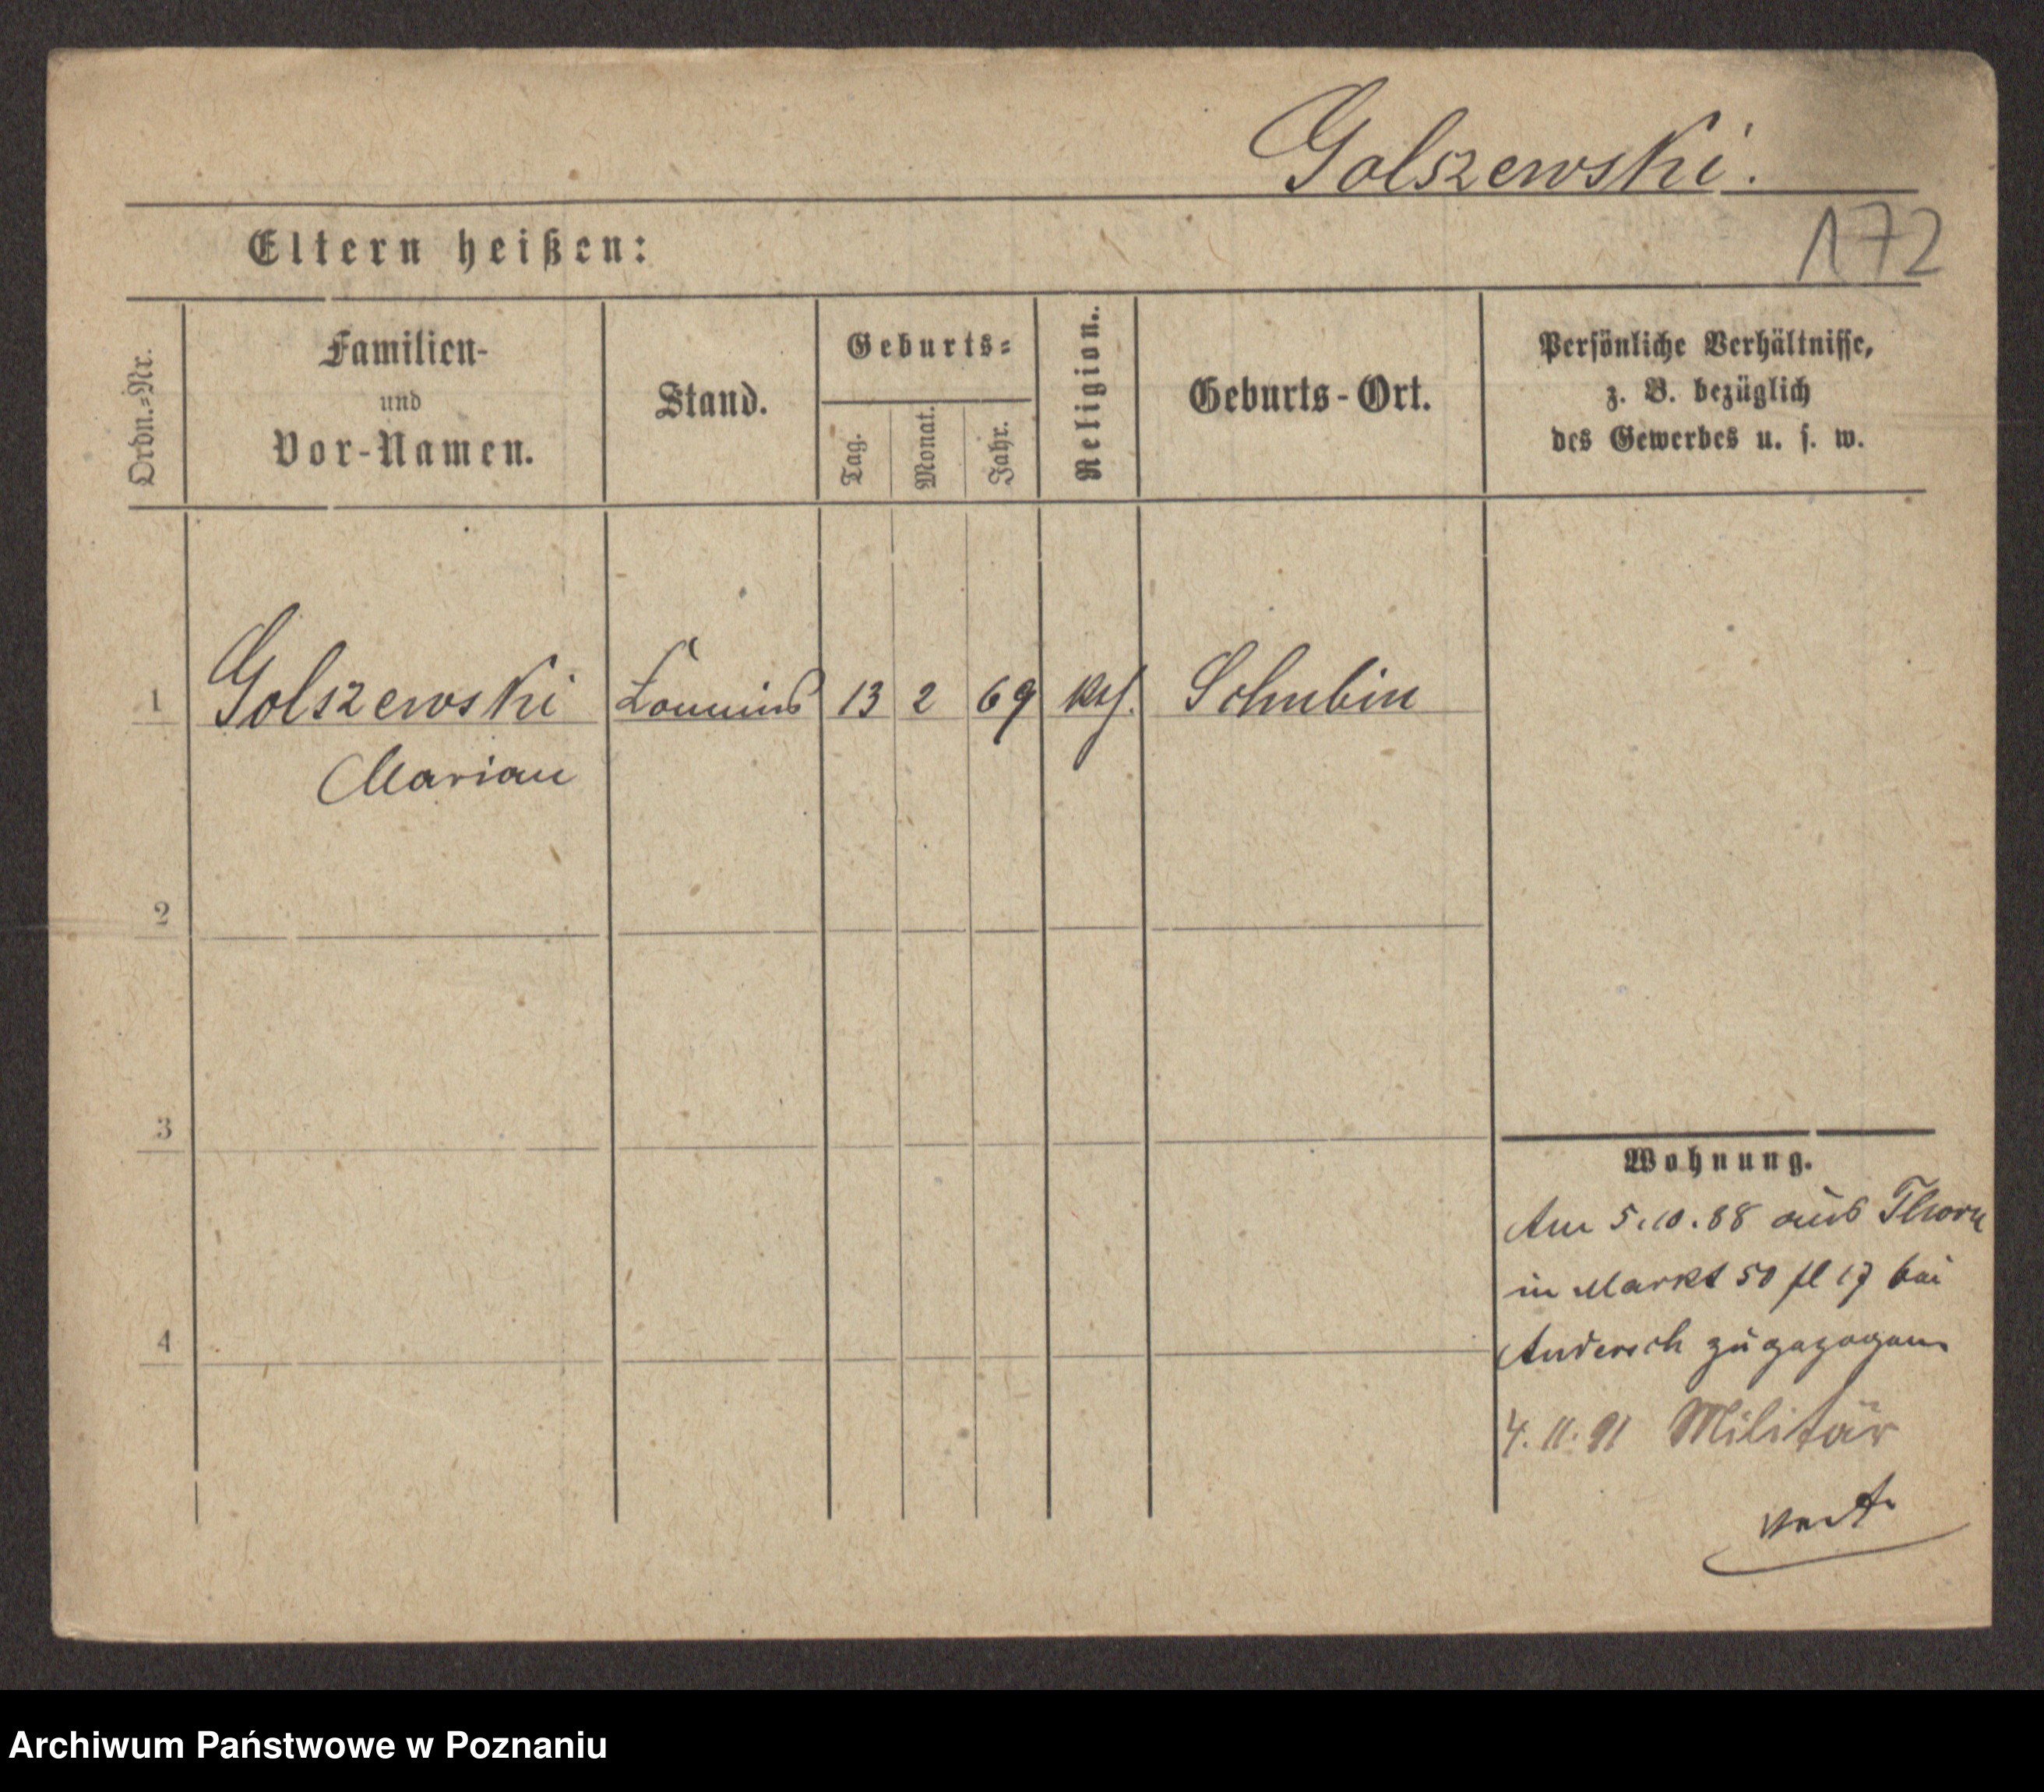 Golszewski.
172
Eltern heißen:
Ordn.=Nr.
Familien-
und
Vor-Namen.
Stand.
Geburts=
Tag.
Monat.
Jahr.
Religion.
Geburts-Ort.
Persönliche Verhältnisse,
z. B. bezüglich
des Gewerbes u. s. w.
1 Golszewski Commis 13 2 69 kth. Schubin
Marian
2
3
4
Wohnung.
Am 5.10.88 aus Thorn
in Markt 50 fl 17 bei
Andersch zugezogen
4.11.91 Militär
Archiwum Państwowe w Poznaniu